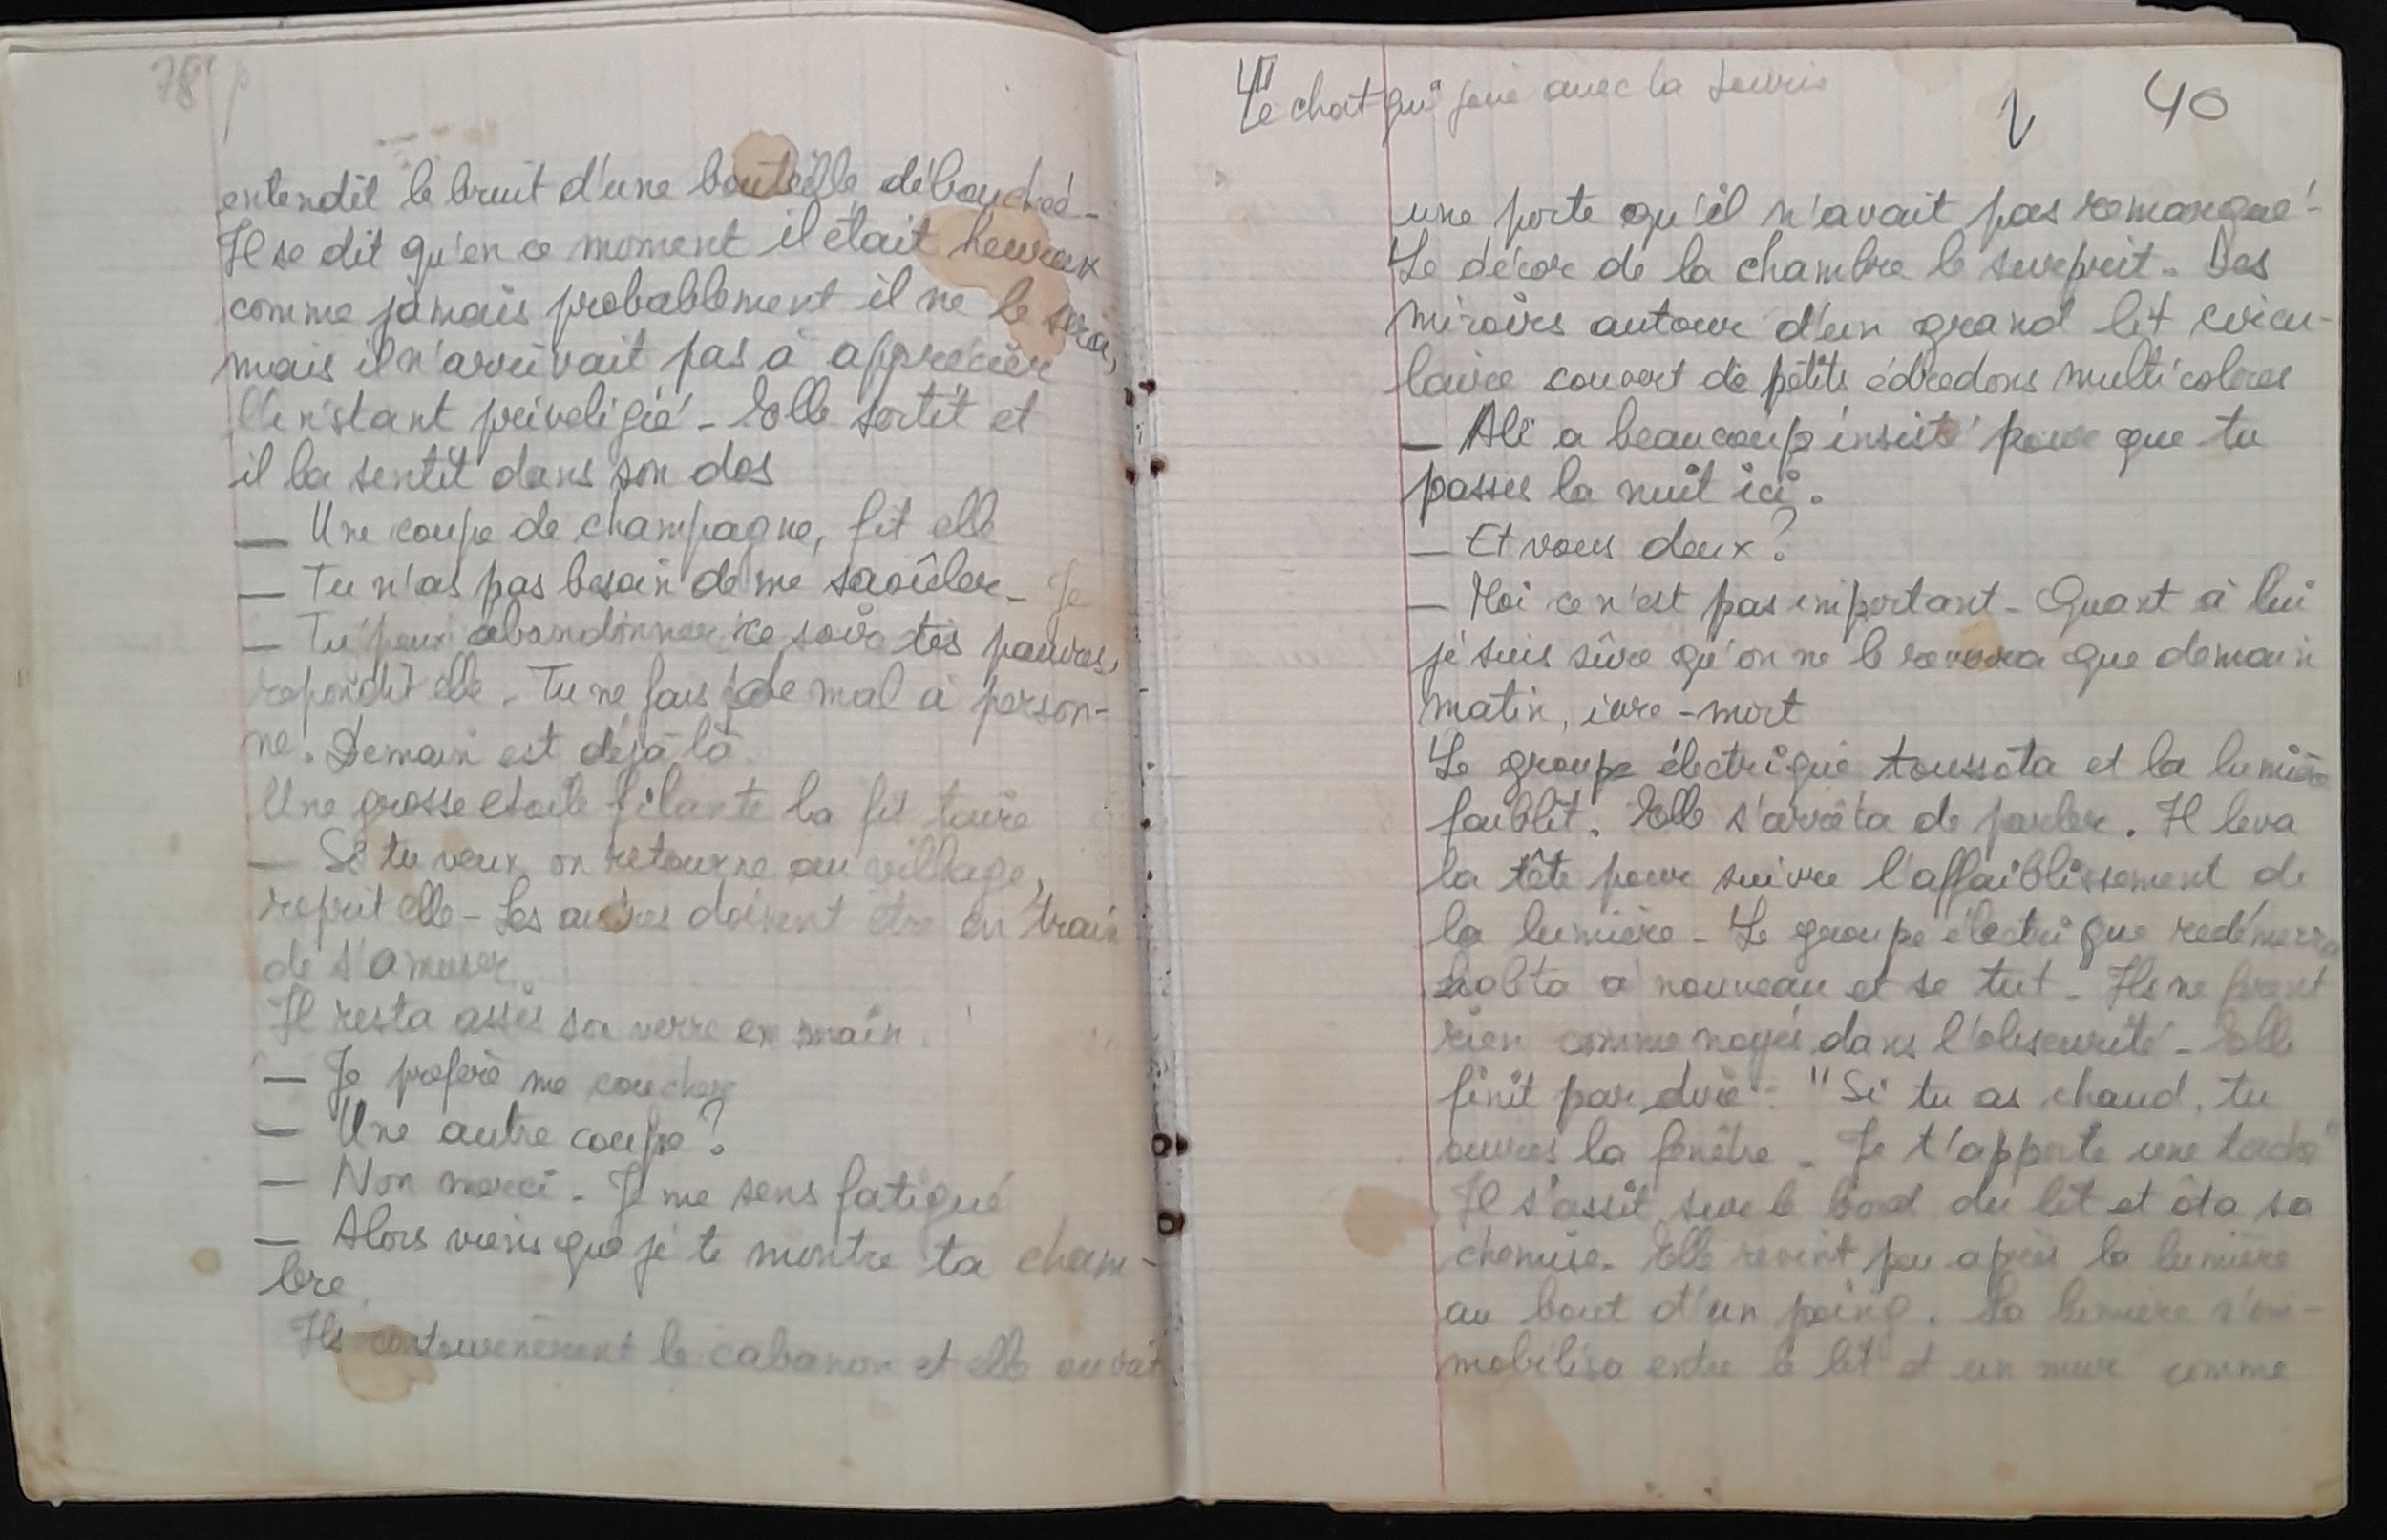 78
entendit le bruit d'une bouteille débouchée -
Il se dit qu'en ce moment il était heureux
comme jamais probablement il ne le sera,
mais il n'arrivait pas à apprécier
l'instant priveligié - Elle sortit et
il la sentit dans son dos
— Une coupe de champagne, fit elle
— Tu n'as pas besoin de me saoûler - Je
— Tu peux abandonner ce soir tes pauvres,
répondit elle - Tu ne fais de mal à person-
ne. Demain est déjà là
Une grosse etoile filante la fit taire
— Si tu veux on retourne au village,
reprit elle - Les autres doivent etre en train
de s'amuser.
Il resta assis son verre en main.
— Je prefère me coucher
— Une autre coupe ?
— Non merci - Je me sens fatigué
— Alors viens que je te montre ta cham-
bre
Ils contournèrent le cabanon et elle ouvrit
Le chat qui joue avec la souris
40
une porte qu'il n'avait pas remarqué -
Le décor de la chambre le surprit - Des
miroirs autour d'un grand lit circu-
laire couvert de petits édredons multicolores
— Ali a beaucoup insisté pour que tu
passes la nuit ici.
— Et vous deux ?
— Moi ce n'est pas important - Quant à lui
je suis sûre qu'on ne le reverra que demain
matin, ivre-mort
Le groupe électrique toussota et la lumière
faiblit. Elle s'arrêta de parler. Il leva
la tête pour suivre l'affaiblissement de
la lumière - Le groupe électrique redémarra
à nouveau et se tut - Ils ne
rien comme noyés dans l'obscurité - Elle
finit par dire : "Si tu as chaud, tu
ouvres la fenêtre - Je t'apporte une torche"
Il s'assit sur le bord du lit et ôta sa
chemise. Elle revint peu après la lumière
au bout d'un poing. La lumière s'im-
mobilisa entre le lit et un mur comme